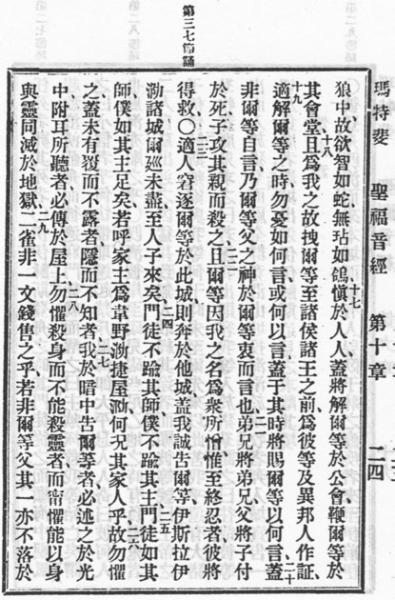 第三七節誦
瑪特斐 聖福音經 第十章 二四
狼中故欲智如蛇無玷如鴿十七慎於人人蓋將解爾等於公會鞭爾等於
其會堂十八且爲我之故拽爾等至諸侯諸王之前爲彼等及異邦人作証
十九適解爾等之時勿憂如何言或何以言蓋于其時將賜爾等以何言二十蓋
非爾等自言乃爾等父之神於爾等衷而言也二一弟兄將弟兄父將子付
於死子攻其親而殺之二二且爾等因我之名爲衆所憎惟至終忍者彼將
得救〇二三適人窘逐爾等於此城則奔於他城蓋我誠告爾等伊斯拉伊
泐諸城爾廵未盡至人子來矣二四門徒不踰其師僕不踰其主二五門徒如其
師僕如其主足矣若呼家主爲韋野泐捷屋泐何況其家人乎二六故勿懼
之蓋未有覆而不露者隱而不知者二七我於暗中告爾等者必述之於光
中附耳所聽者必傳於屋上二八勿懼殺身而不能殺靈者而甯懼能以身
與靈同滅於地獄二九二雀非一文錢售之乎若非爾等父其一亦不落於